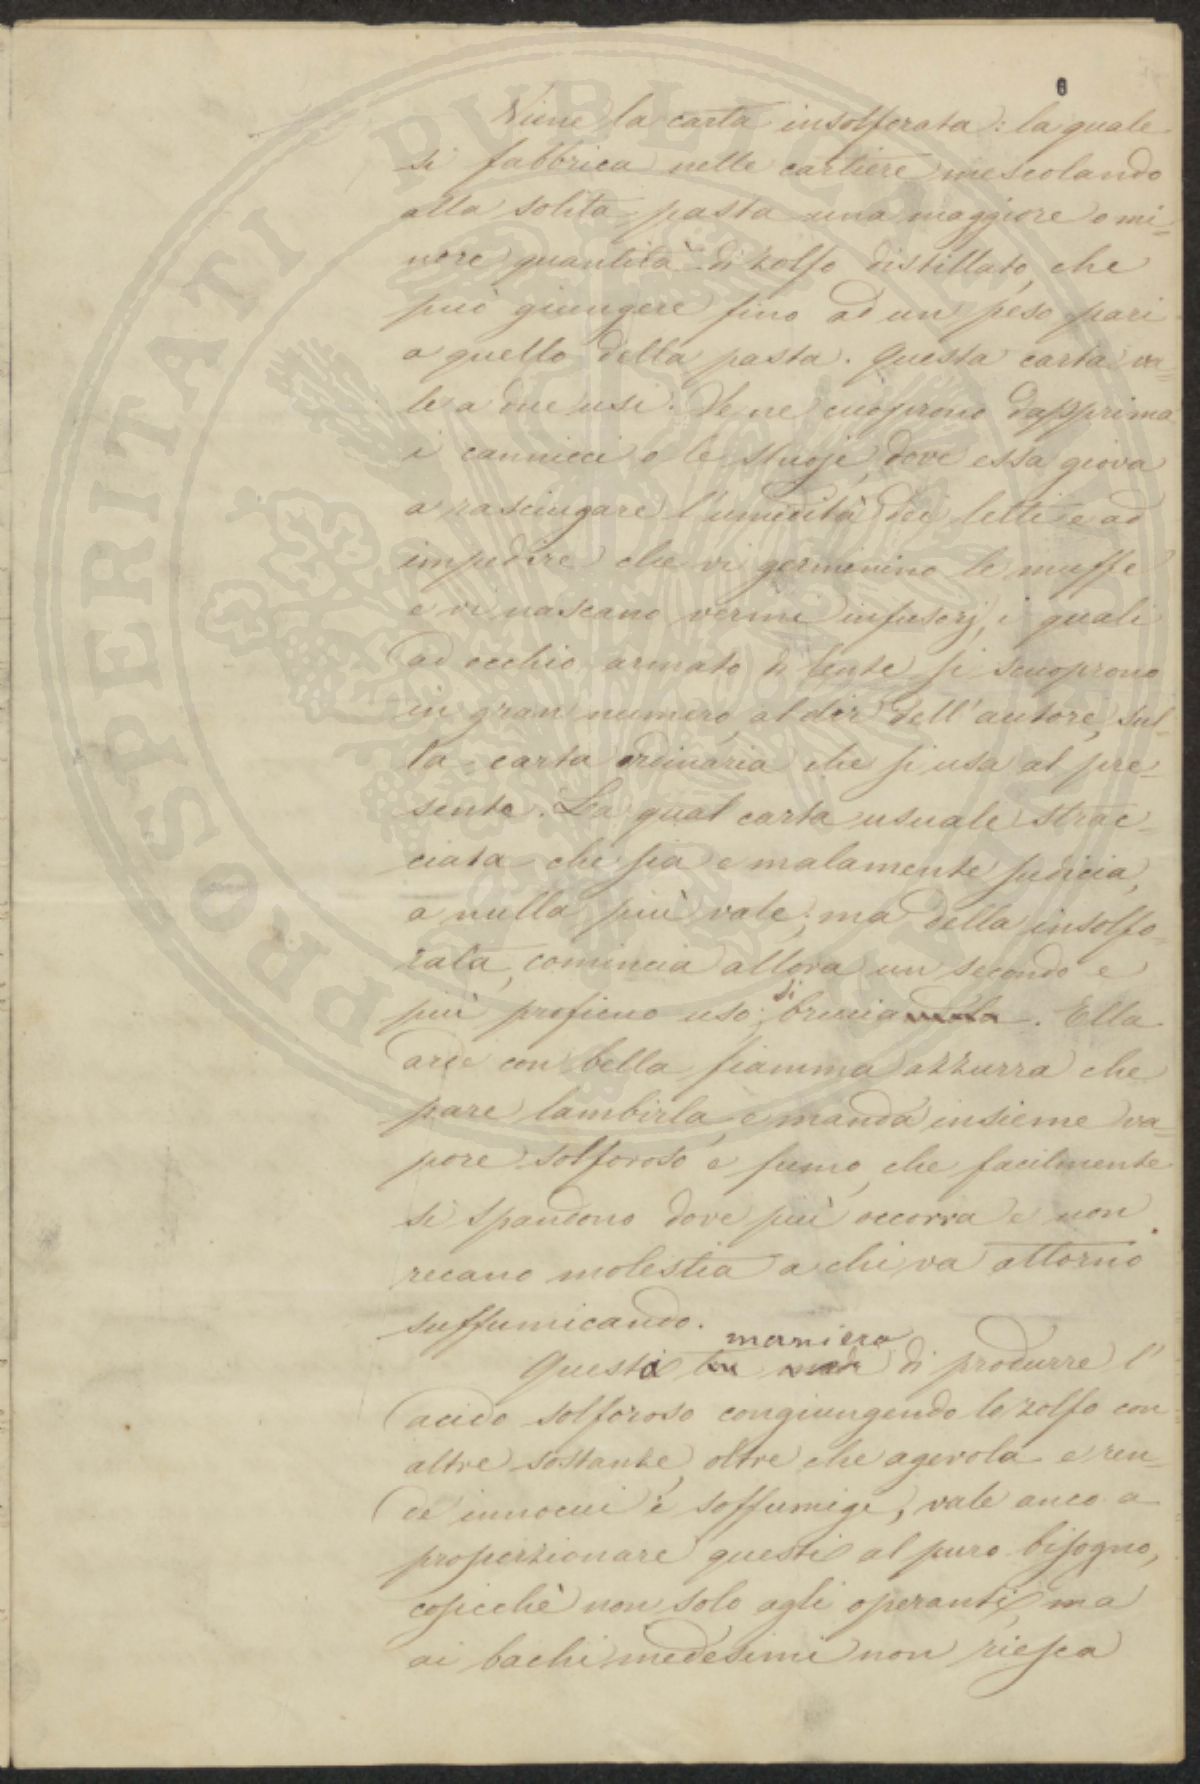 6
Viene la carta insolforata: la quale
si fabbrica nelle cartiere mescolando
alla solita pasta una maggiore o mi=
nore quantità di zolfo distillato, che
può giungere fino ad un peso pari
a quello della pasta. Questa carta va=
le a due usi. Se ne cuoprono dapprima
i cannicci o le stuoje, dove essa giova
a rasciugare l'umidità dei letti e ad
impedire che vi germinino le muffe
e vi nascano vermi infusorj, i quali
ad occhio armato di lente si scuoprono
in gran numero, al dir dell'autore, sul=
la carta ordinaria che si usa al pre=
sente. La qual carta usuale strac=
ciata che sia e malamente sudicia,
a nulla più vale; ma della insolfo=
rata, comincia allora un secondo e
più proficuo uso: si brucia. Ella
arde con bella fiamma azzurra che
pare lambirla, e manda insieme va=
pore solforoso e fumo, che facilmente
si spandono dove più occorra e non
recano molestia a chi va attorno
suffumicando.
Questa maniera di produrre l'
acido solforoso congiungendo lo zolfo con
altre sostanze, oltre che agevola e ren=
de innocui i soffumigi, vale anco a
proporzionare questi al puro bisogno,
cosicchè non solo agli operanti, ma
ai bachi medesimi non riesca
PROSPERITATI PUBLICAE AUGENDAE